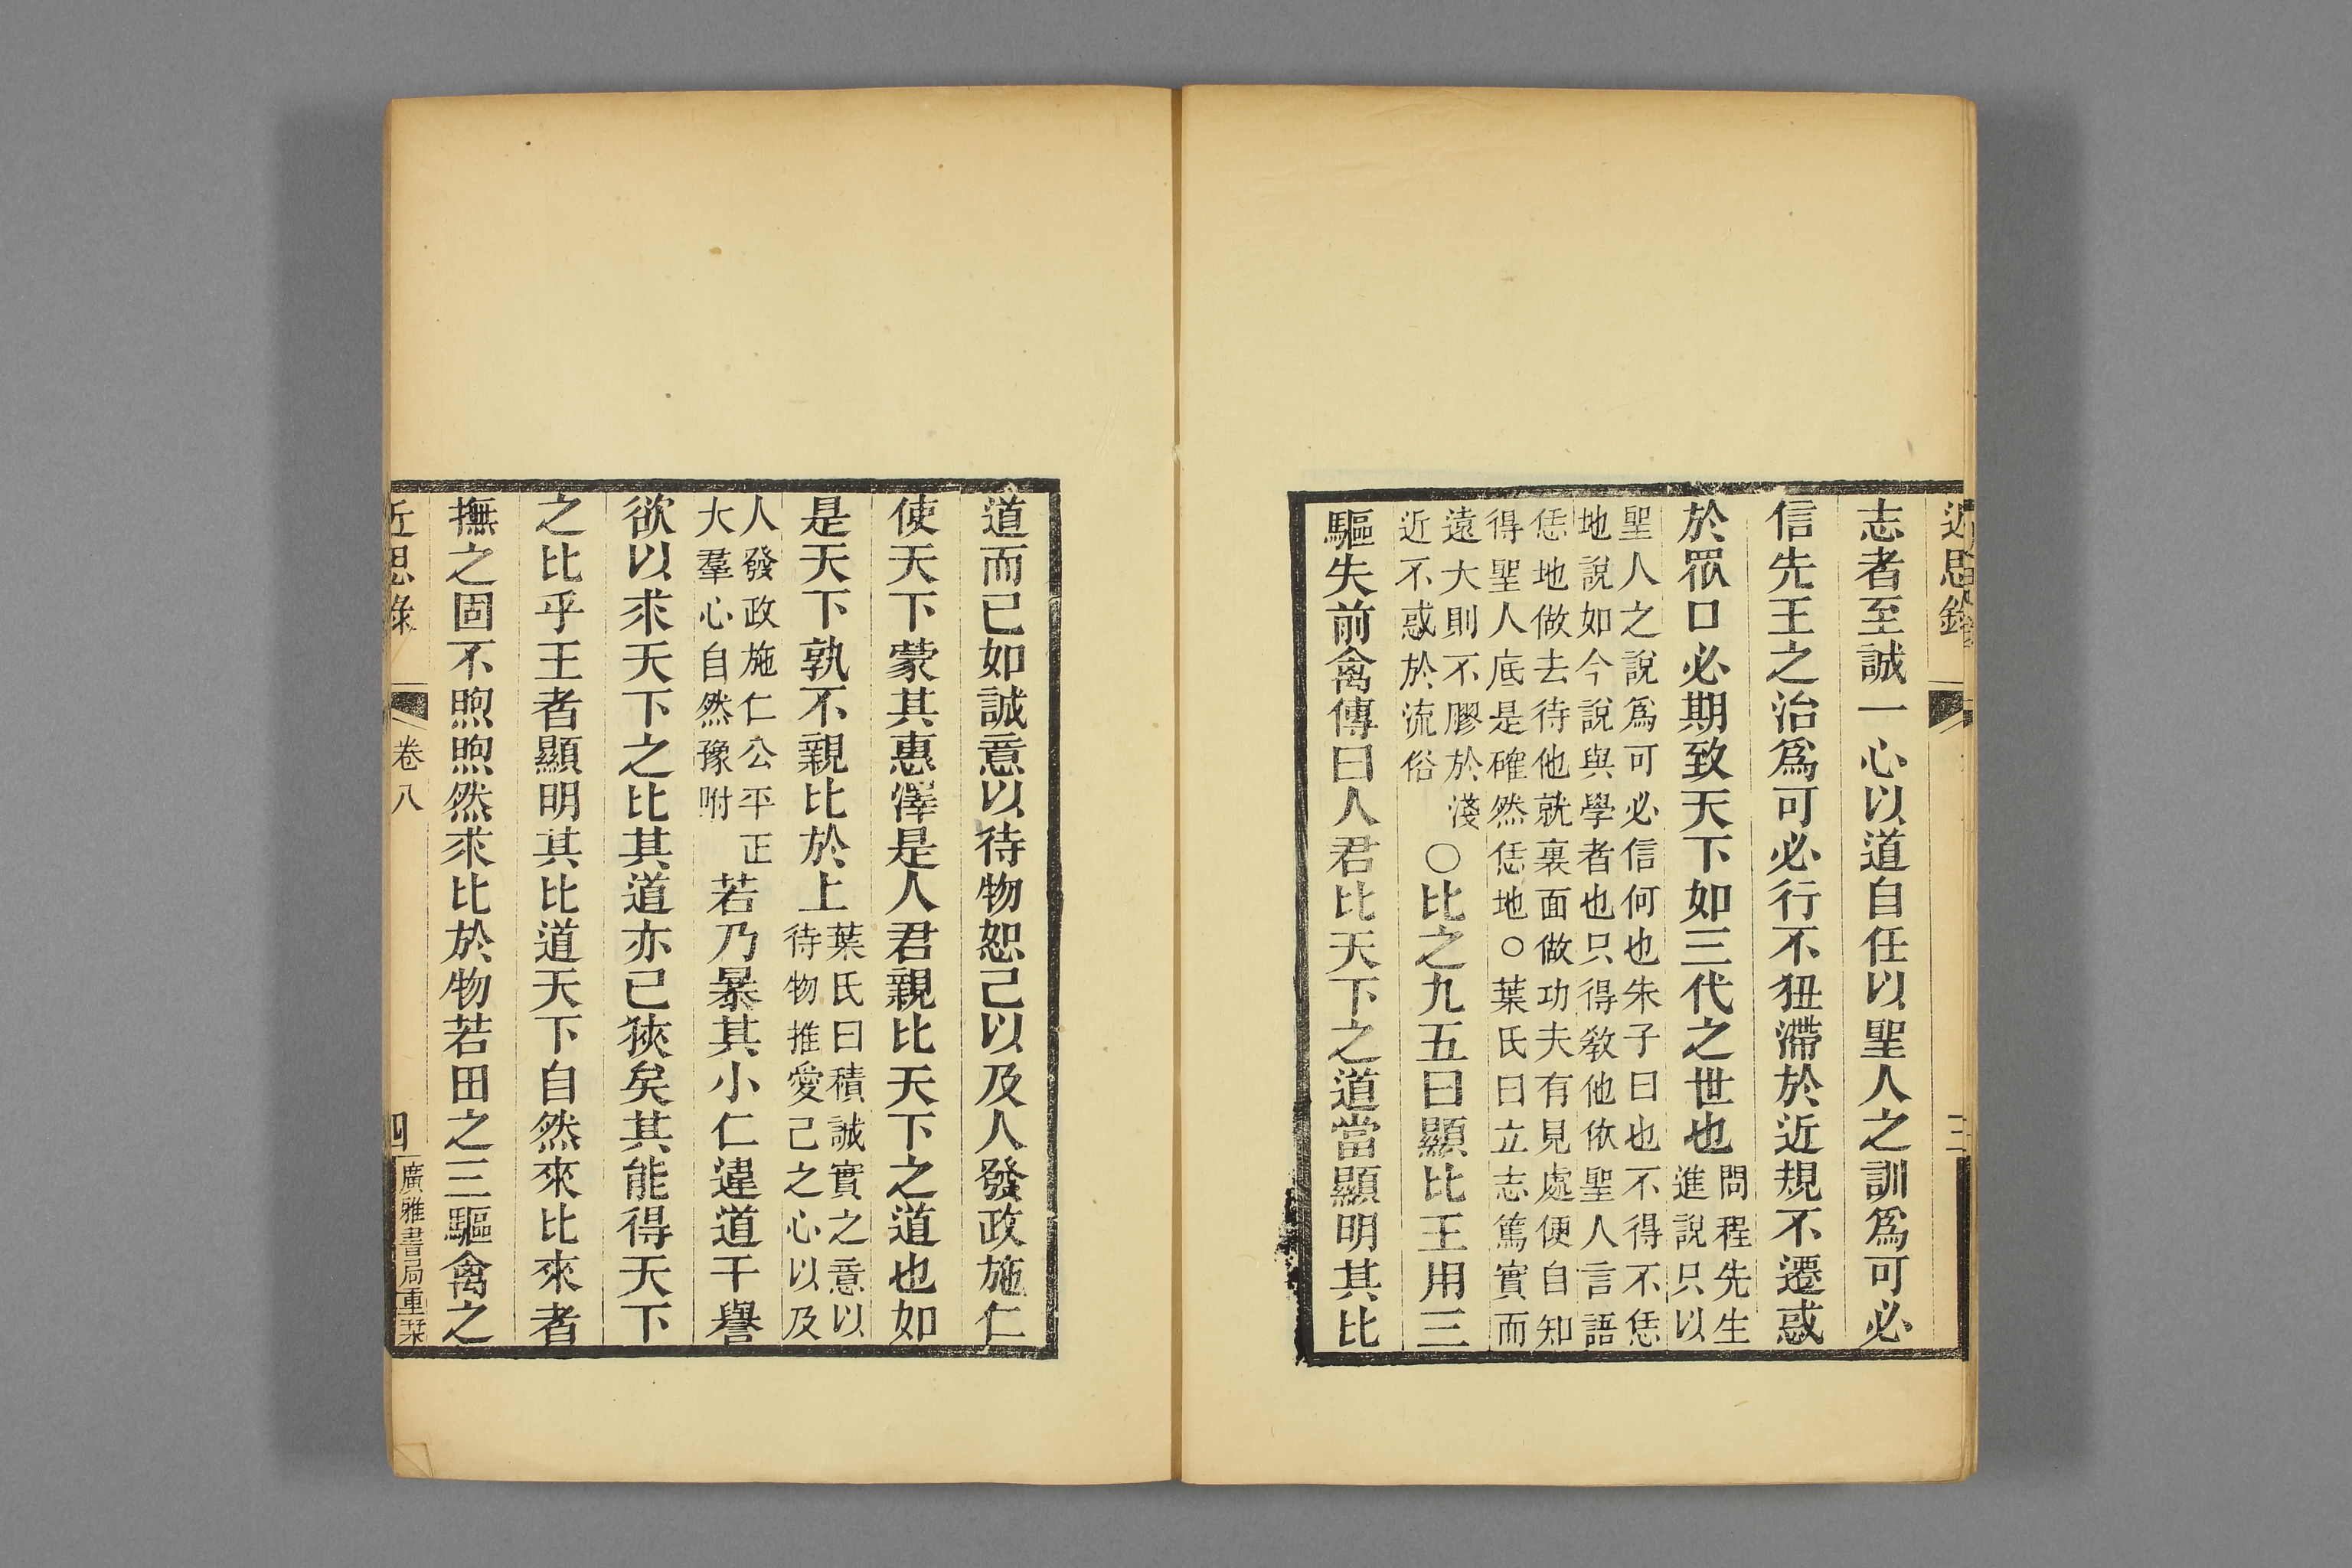 近思錄
三
志者至誠一心以道自任以聖人之訓爲可必
信先王之治爲可必行不狃滯於近規不遷惑
於眾口必期致天下如三代之世也問程先生
進說只以
聖人之說爲可必信何也朱子曰也不得不恁
地說如今說與學者也只得敎他依聖人言語
恁地做去待他就裏面做功夫有見處便自知
得聖人底是確然恁地○葉氏曰立志篤實而
遠大則不膠於淺
近不惑於流俗
○比之九五曰顯比王用三
驅失前禽傳曰人君比天下之道當顯明其比
道而已如誠意以待物恕己以及人發政施仁
使天下蒙其惠澤是人君親比天下之道也如
是天下孰不親比於上葉氏曰積誠實之意以
待物推愛己之心以及
人發政施仁公平正
大羣心自然豫附
若乃暴其小仁違道干譽
欲以求天下之比其道亦已狹矣其能得天下
之比乎王者顯明其比道天下自然來比來者
撫之固不煦煦然求比於物若田之三驅禽之
近思錄
卷八
四
廣雅書局重栞